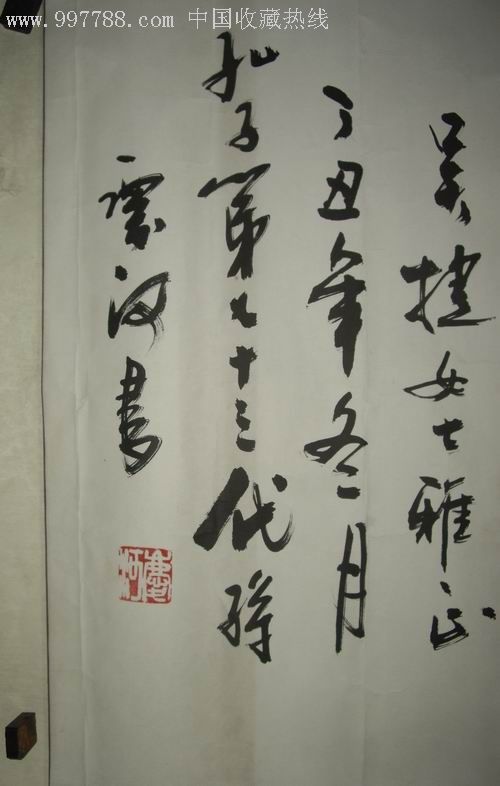 www.997788.com 中国收藏热线
吴捷女士雅正
丁丑年冬月
孔子第七十三代孫
書